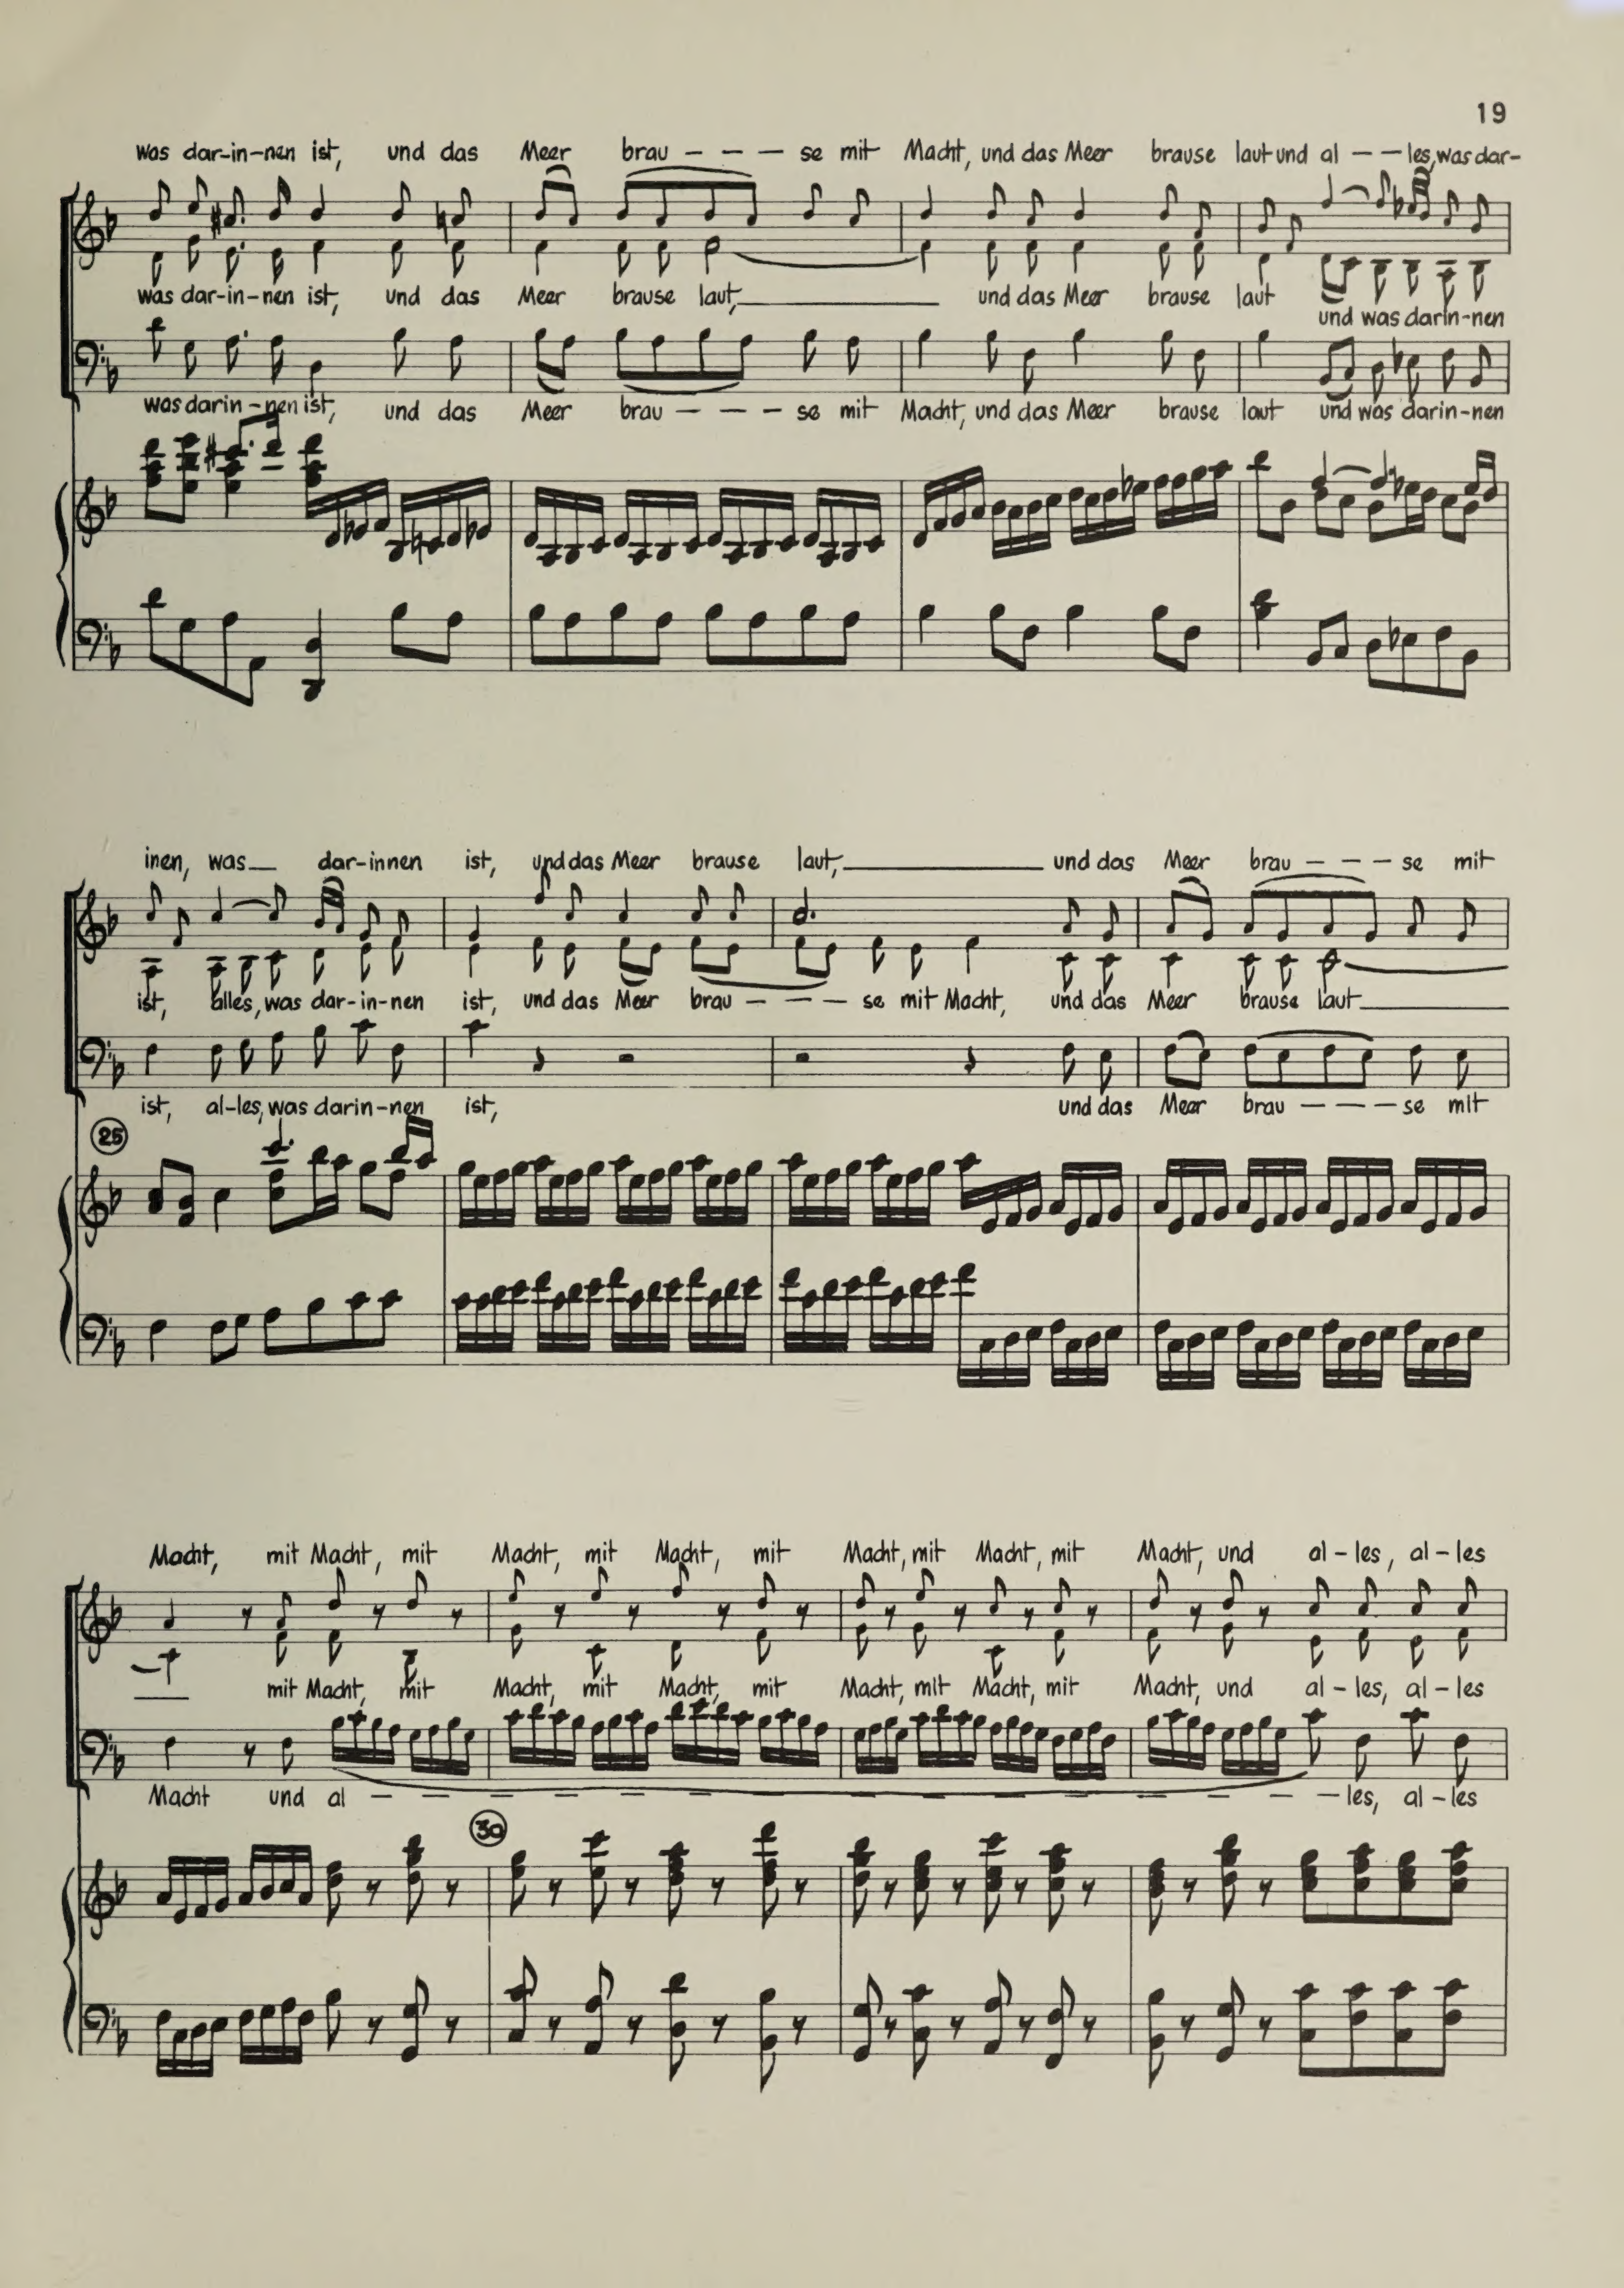 19
was dar-in-nen ist, und das Meer brau - - - se mit Macht, und das Meer brause laut und al - - les, was dar-
was dar-in-nen ist, und das Meer brause laut, und das Meer brause laut
und was darin-nen
was darin-nen ist, und das Meer brau - - - se mit Macht, und das Meer brause laut und was darin-nen
inen, was dar-innen ist, und das Meer brause laut, und das Meer brau - - - se mit
ist, alles, was dar-in-nen ist, und das Meer brau - - - se mit Macht, und das Meer brause laut
ist, al-les, was darin-nen ist, und das Meer brau - - - se mit
25
Macht, mit Macht, mit Macht, mit Macht, mit Macht, mit Macht, mit Macht, und al-les, al-les
mit Macht, mit Macht, mit Macht, mit Macht, mit Macht, mit Macht, und al-les, al-les
Macht und al - - - - - - - - - - - - - - - les, al-les
30